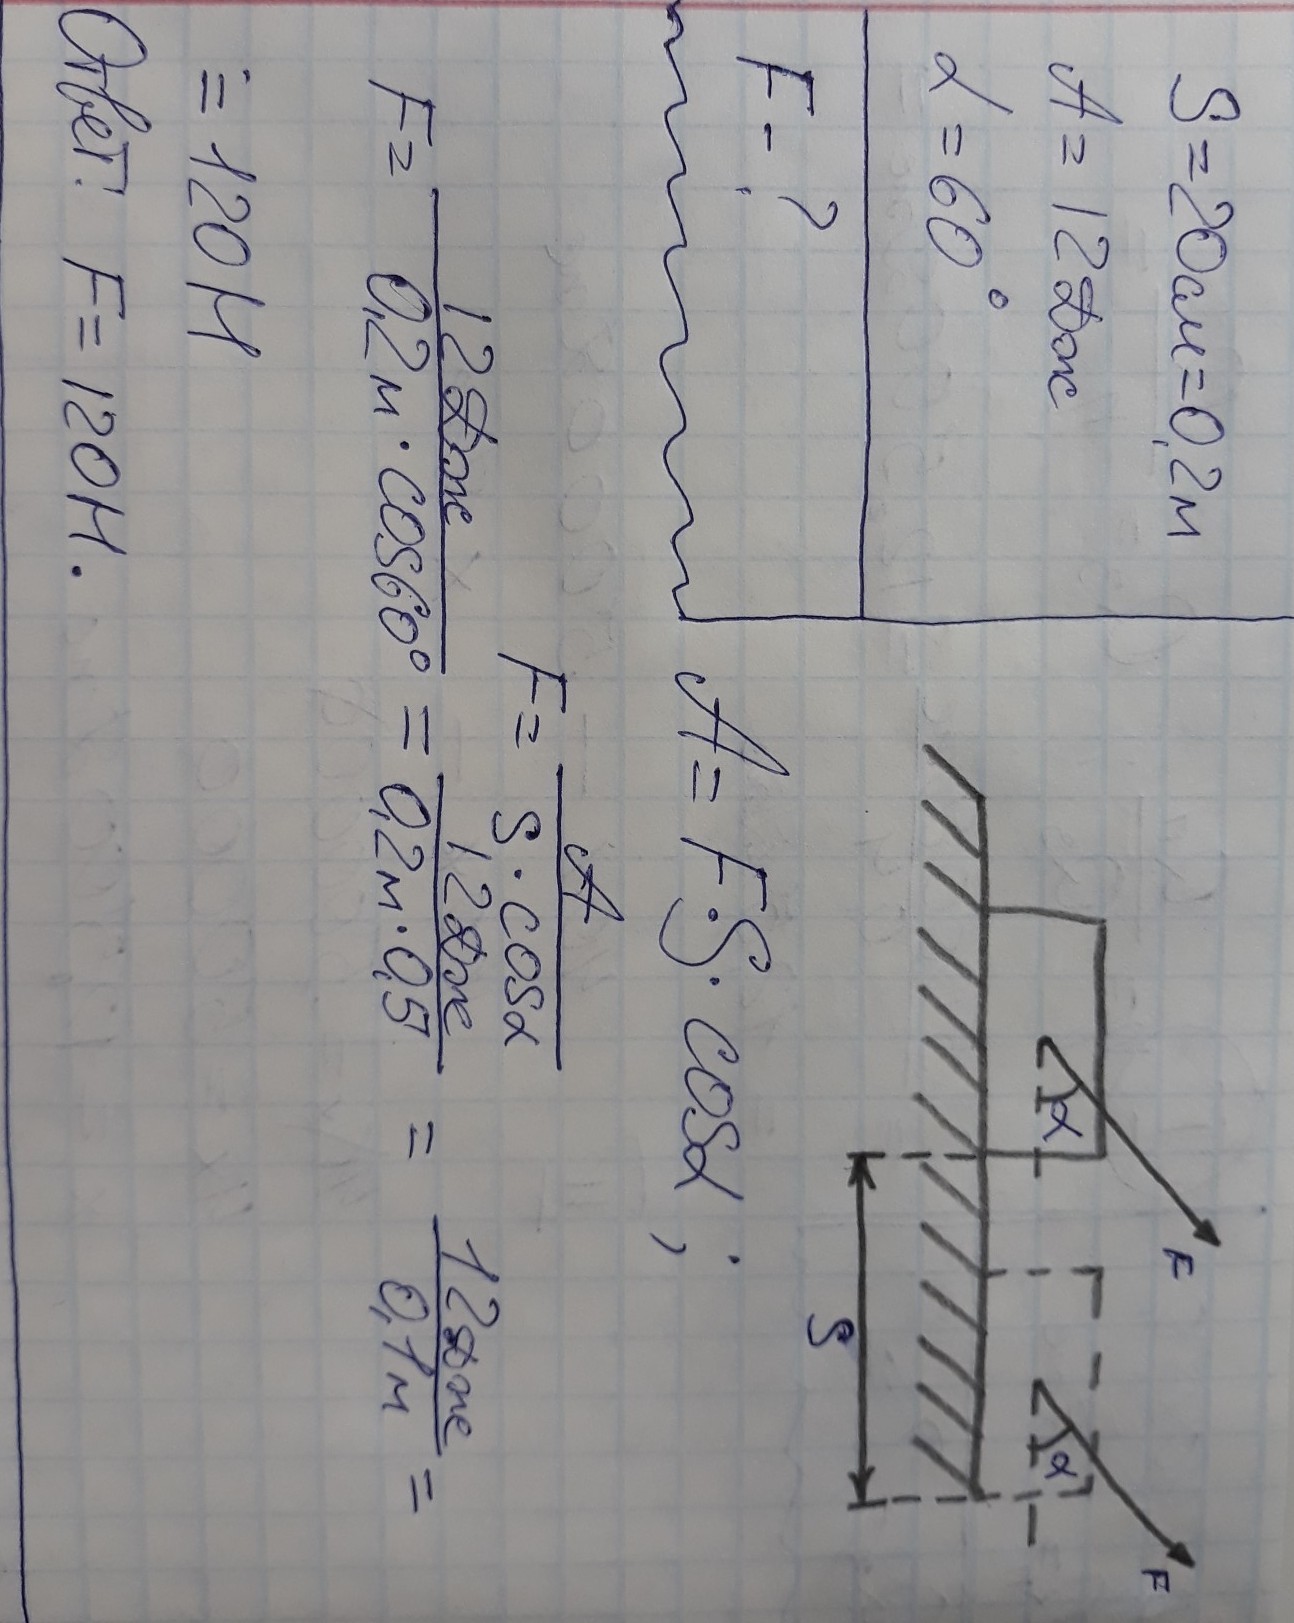 S = 20см = 0,2м
A = 12Дж
α = 60°
F - ?
F
F
α
α
S
A = F·S·cosα;
F = A / S·cosα
F = 12Дж / 0,2м·cos60° = 12Дж / 0,2м·0,5 = 12Дж / 0,1м =
= 120Н
Ответ: F = 120Н.